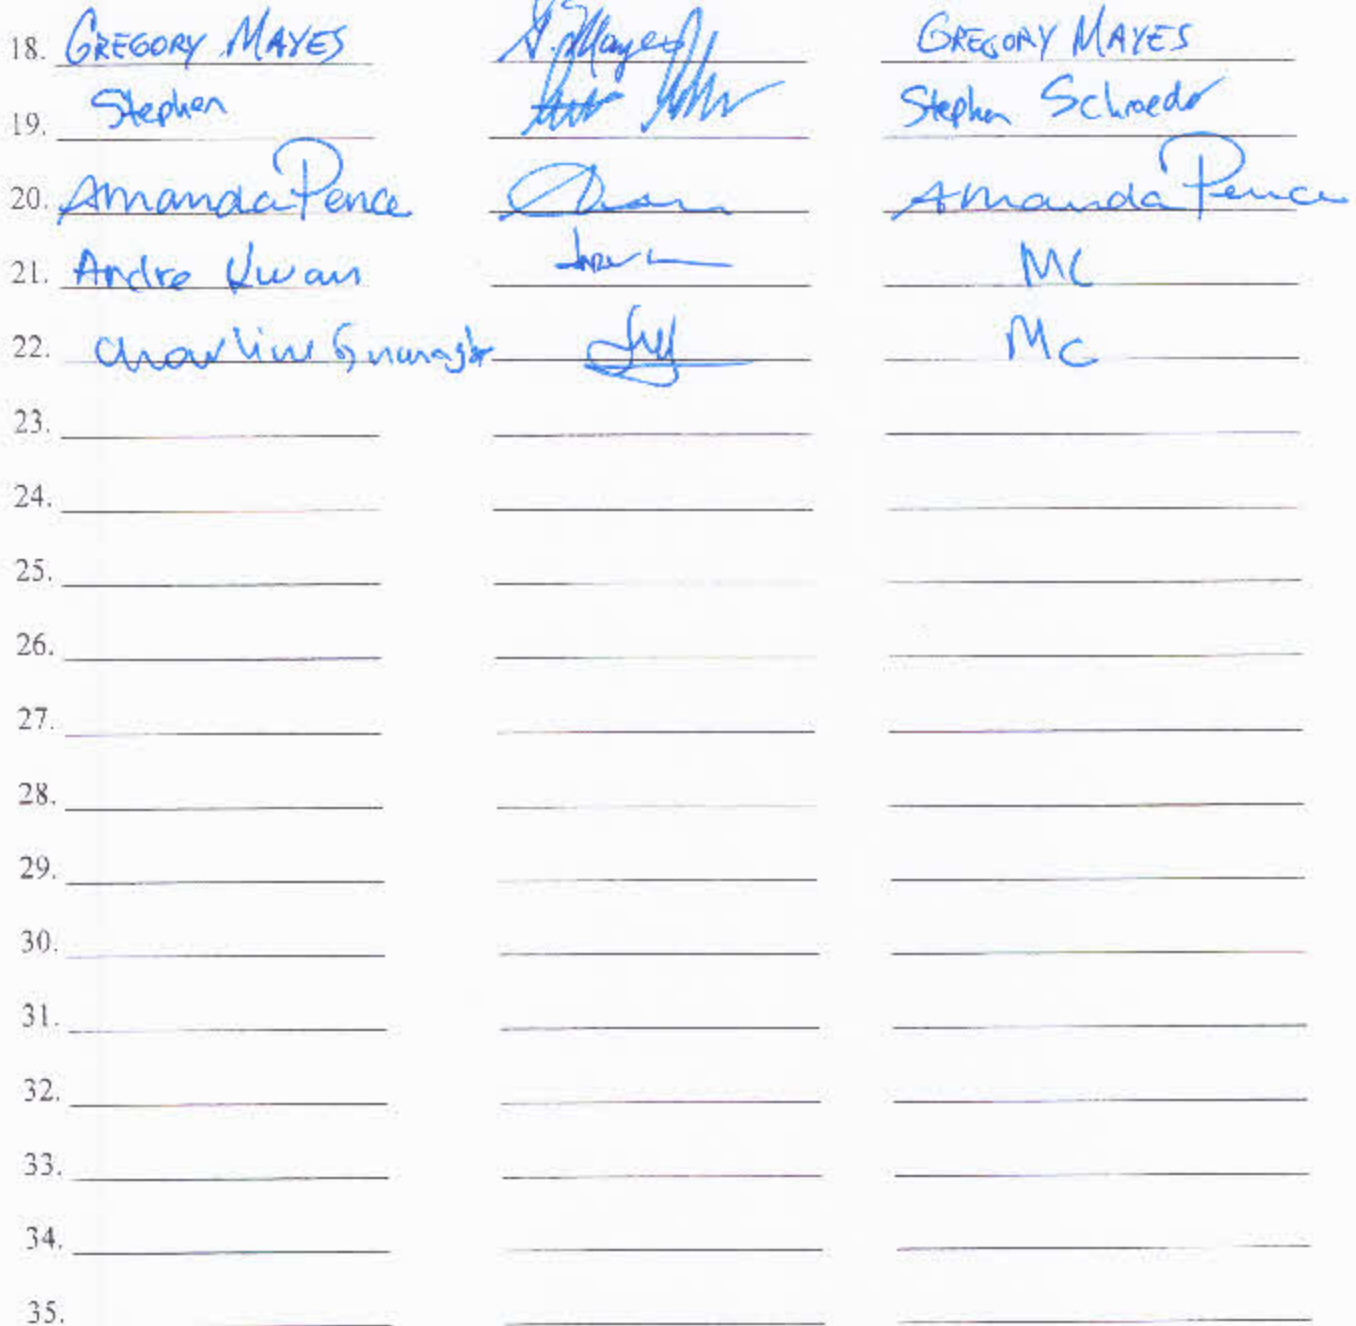 18. GREGORY MAYES G. Mayes GREGORY MAYES
19. Stephen Stephen Schroeder
20. Amanda Pence Amanda Pence
21. Andre Kwan MC
22. Charline MC
23.
24.
25.
26.
27.
28.
29.
30.
31.
32.
33.
34.
35.